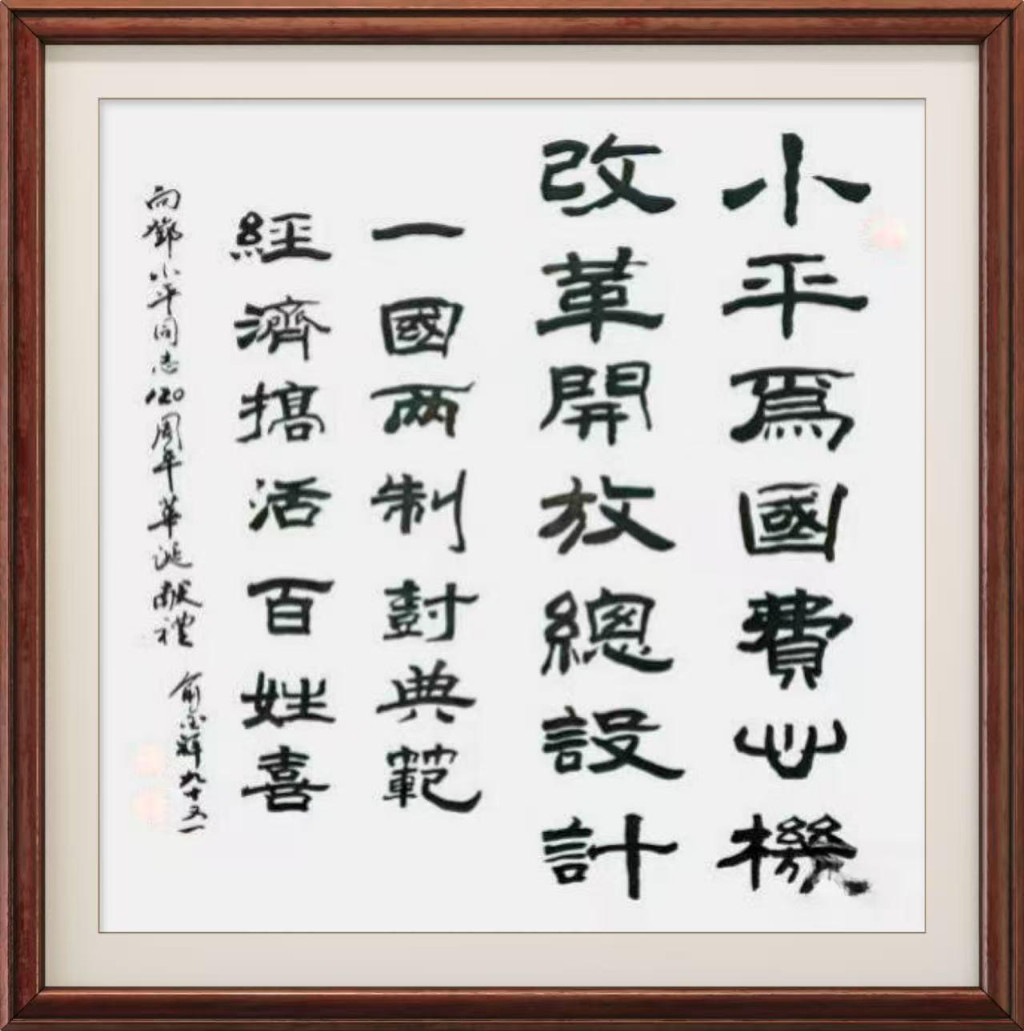 小平為國費心機
改革開放總設計
一國两制封典範
經濟搞活百姓喜
向鄧小平同志120周年華誕献禮
俞金輝九十又一